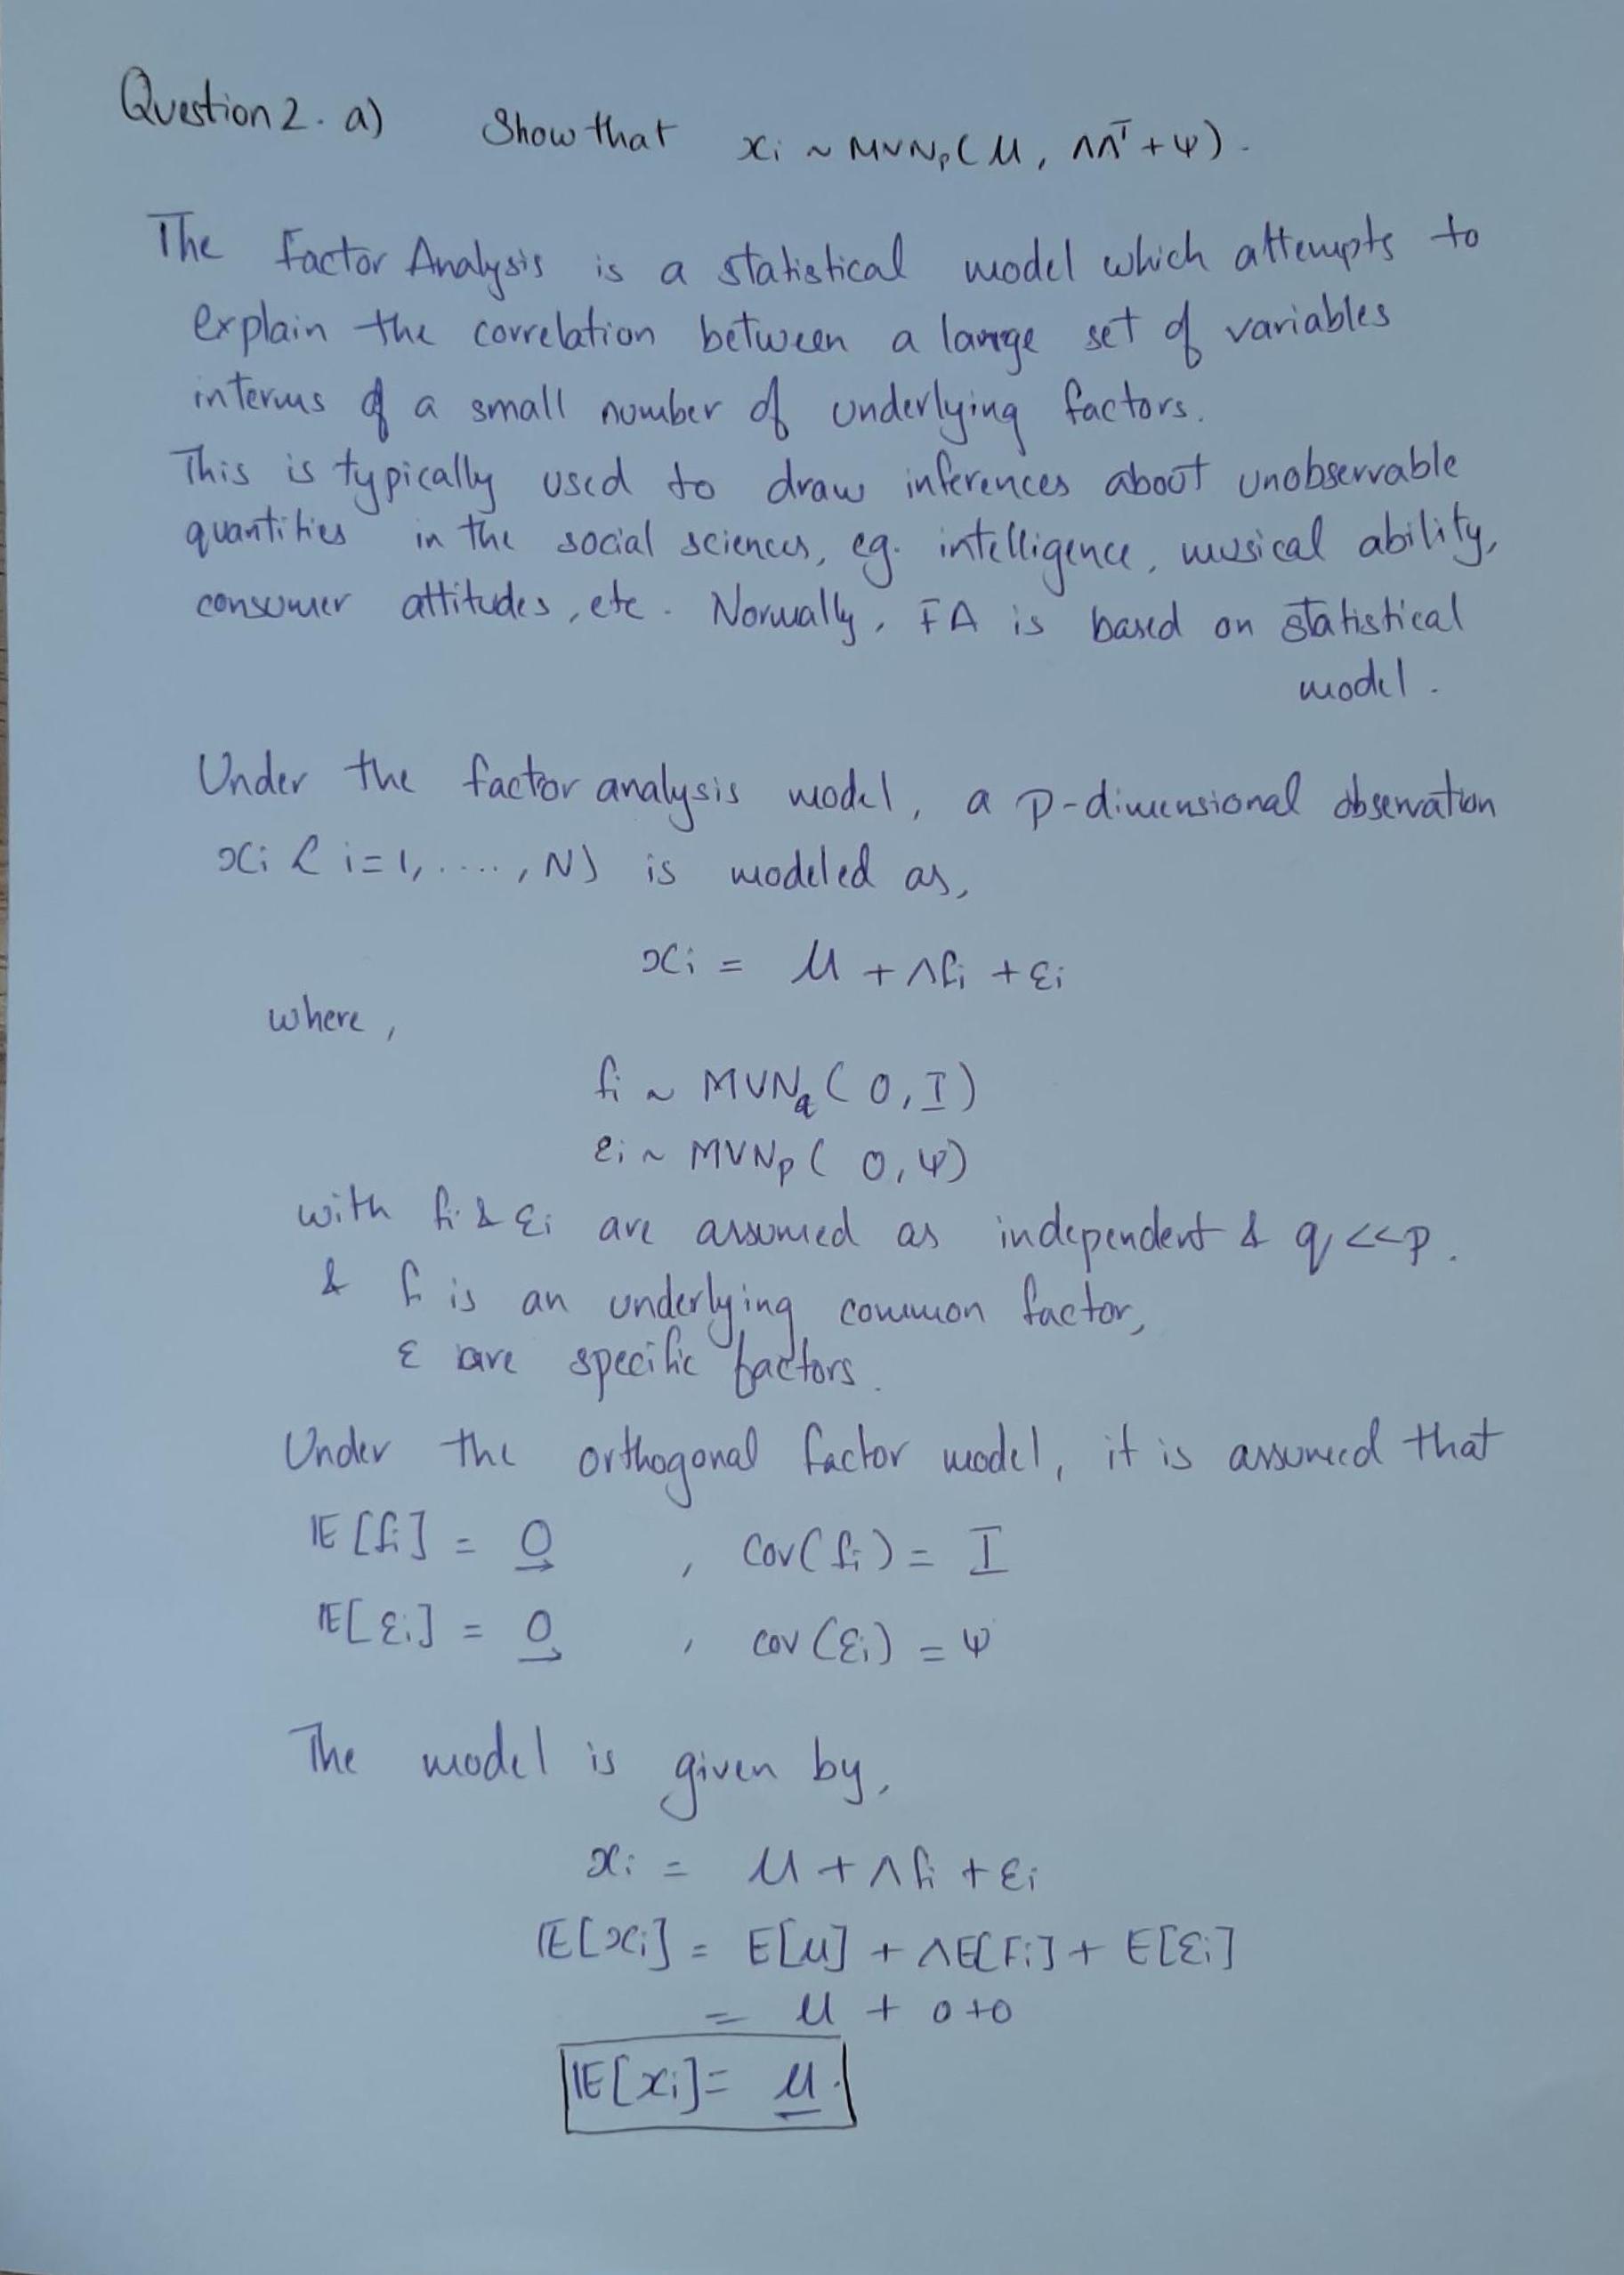 Question 2. a) Show that xi ~ MVNp(μ, ΛΛᵀ+ψ).
The Factor Analysis is a statistical model which attempts to
explain the correlation between a large set of variables
interms of a small number of underlying factors.
This is typically used to draw inferences about unobservable
quantities in the social sciences, eg. intelligence, musical ability,
consumer attitudes, etc. Normally, FA is based on statistical
model.
Under the factor analysis model, a p-dimensional observation
xi (i=1,....,N) is modeled as,
xi = μ + Λfi + εi
where,
fi ~ MVNq(0,I)
εi ~ MVNp(0,ψ)
with fi & εi are assumed as independent & q<<p.
& fi is an underlying common factor,
ε are specific factors.
Under the orthogonal factor model, it is assumed that
E[fi] = 0 , Cov(fi) = I
E[εi] = 0 , cov(εi) = ψ
The model is given by,
xi = μ + Λfi + εi
E[xi] = E[μ] + ΛE[Fi] + E[εi]
= μ + 0+0
E[xi]= μ.